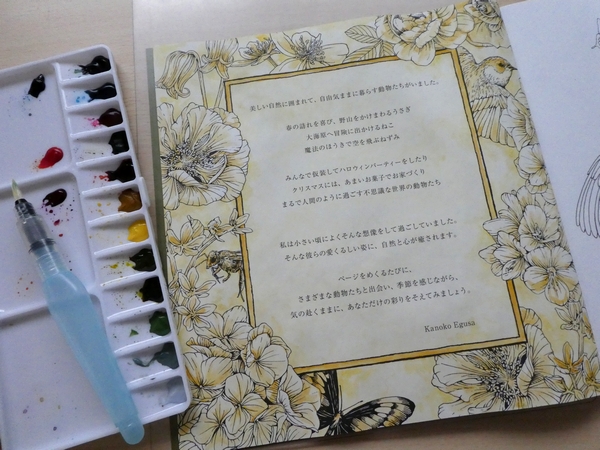 美しい自然に囲まれて、自由気ままに暮らす動物たちがいました。
春の訪れを喜び、野山をかけまわるうさぎ
大海原へ冒険に出かけるねこ
魔法のほうきで空を飛ぶねずみ
みんなで仮装してハロウィンパーティーをしたり
クリスマスには、あまいお菓子でお家づくり
まるで人間のように過ごす不思議な世界の動物たち
私は小さい頃によくそんな想像をして過ごしていました。
そんな彼らの愛くるしい姿に、自然と心が癒されます。
ページをめくるたびに、
さまざまな動物たちと出会い、季節を感じながら、
気の赴くままに、あなただけの彩りをそえてみましょう。
Kanoko Egusa